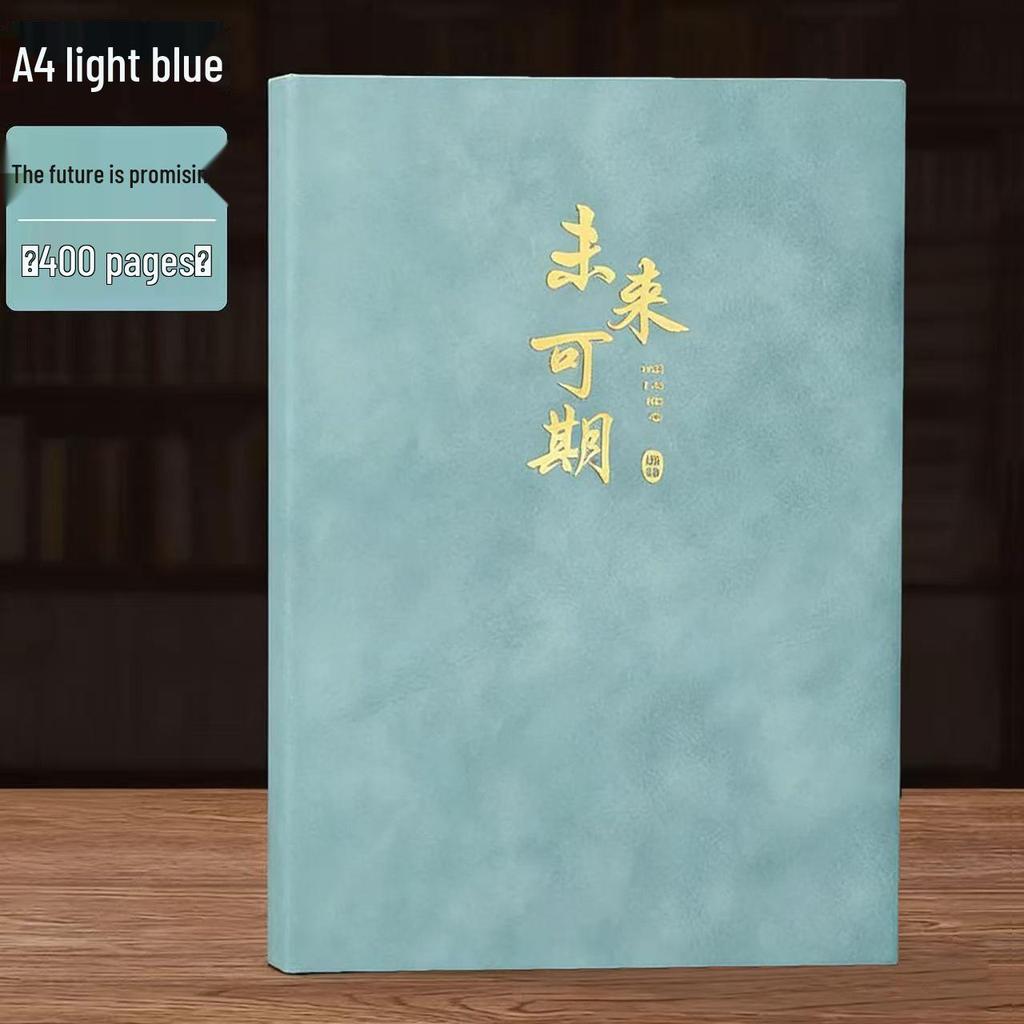 A4 light blue
The future is promisin
400 pages
未来
可
期